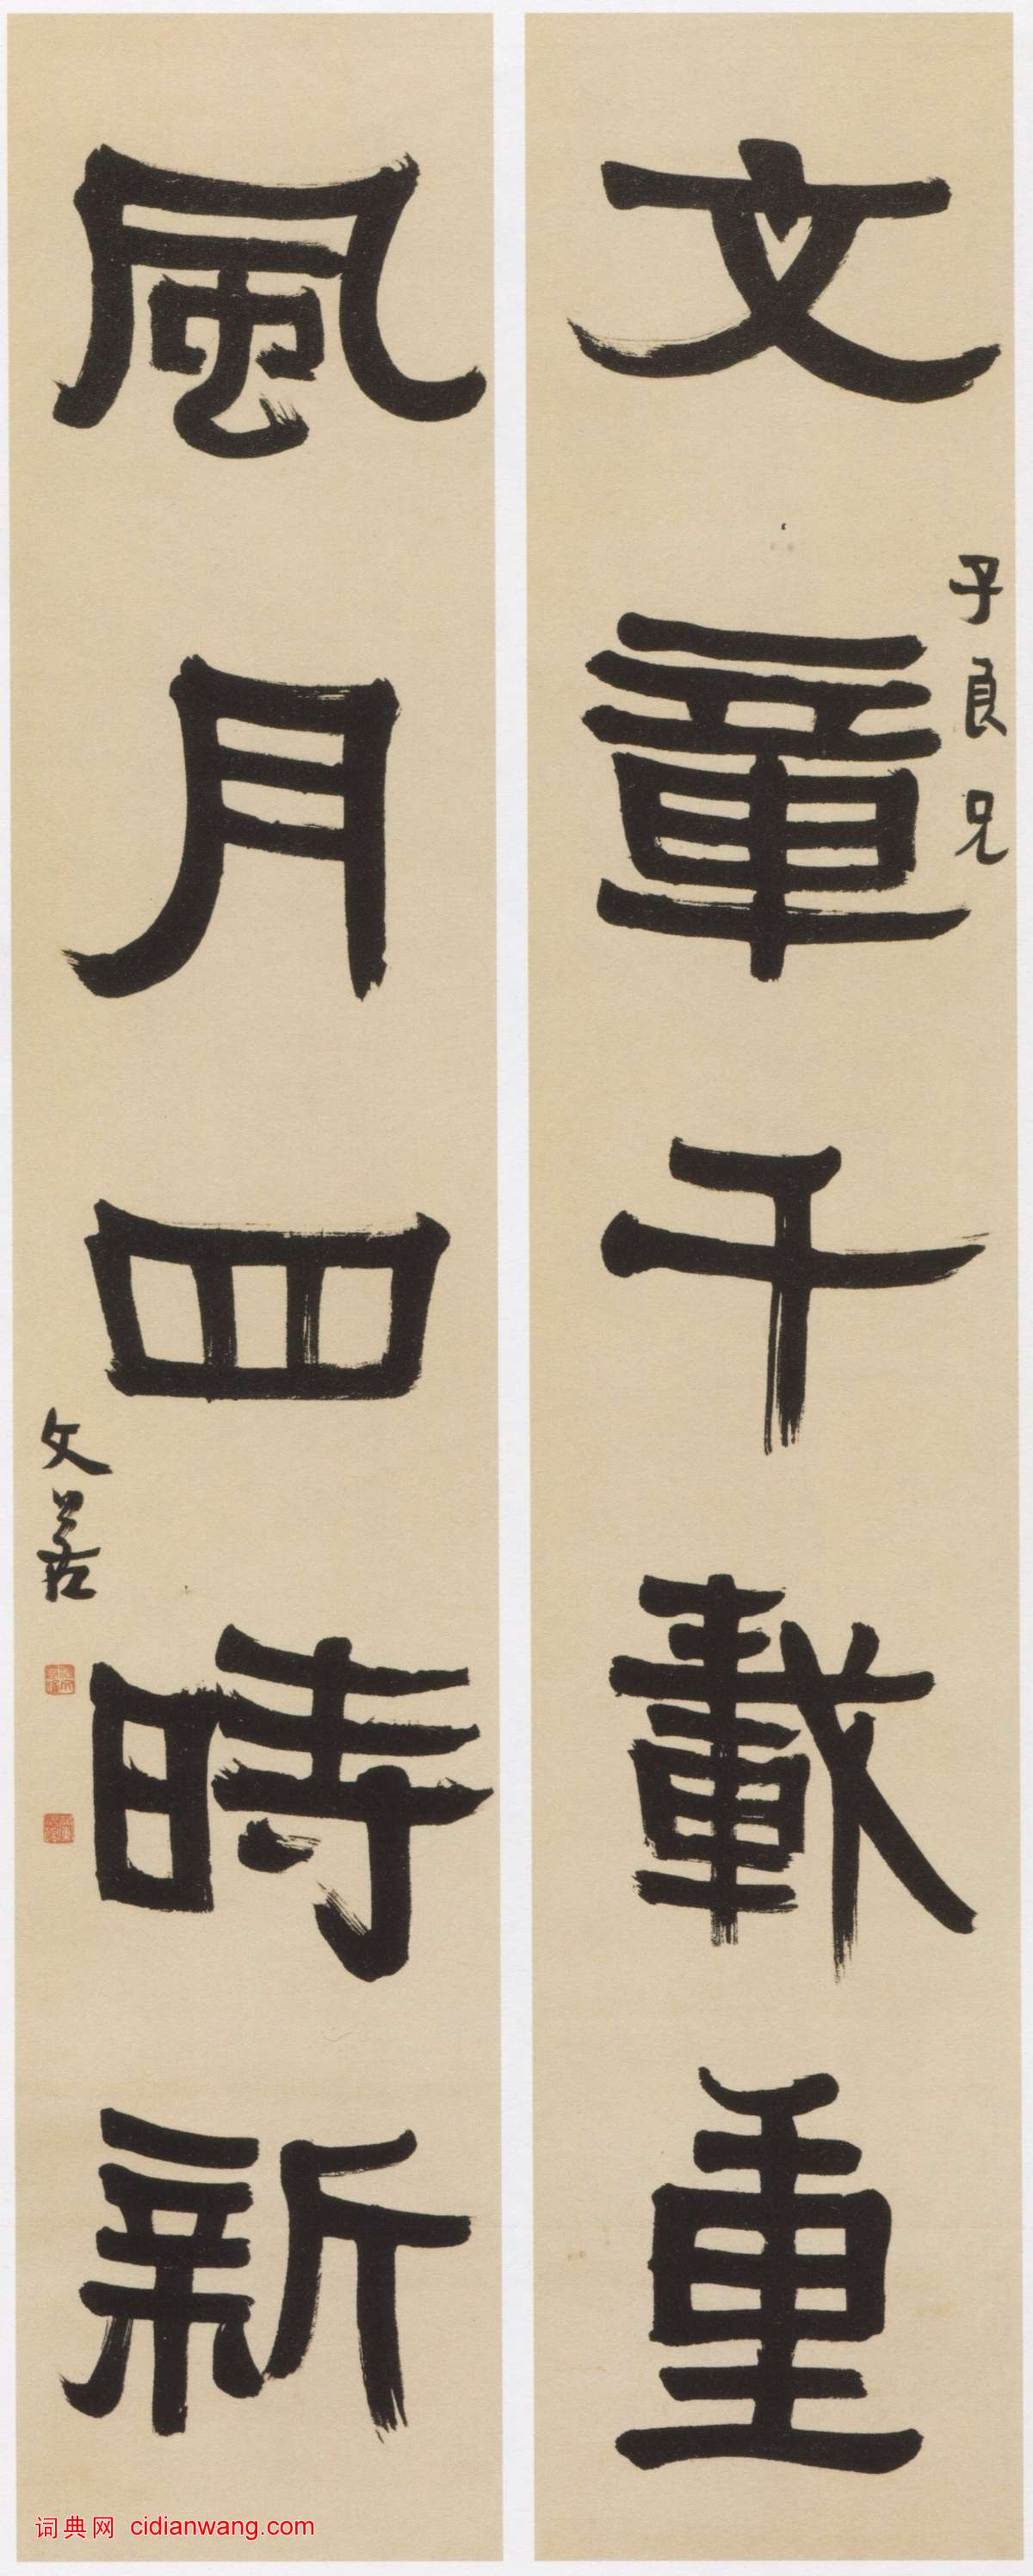 文章千載重
子良兄
風月四時新
文若
词典网 cidianwang.com